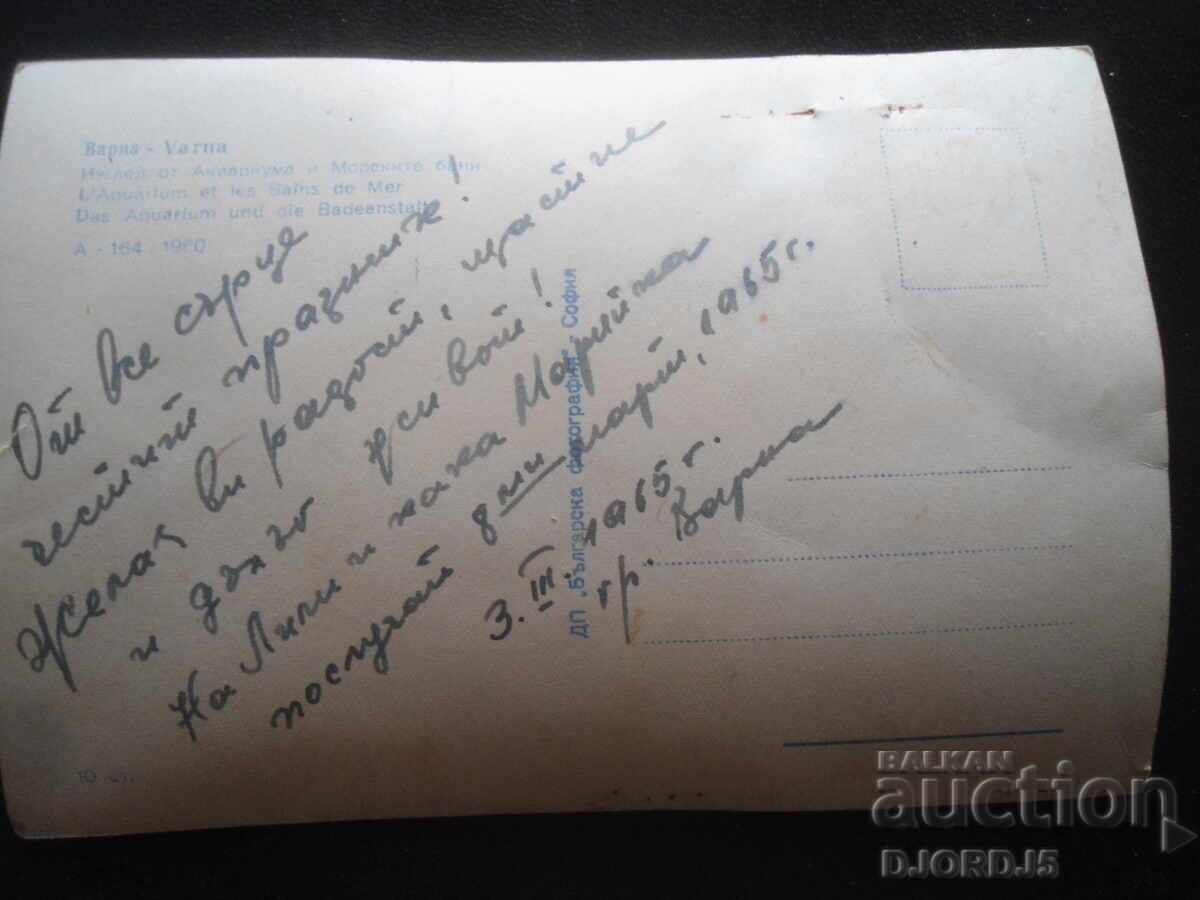 Варна - Varna
Изглед от Аквариума и Морските бани
L'Aquarium et les Bains de Mer
Das Aquarium und die Badeanstalt
А - 164 - 1960
От все сърце
честит празник!
Желая ви радост, щастие
и дълго живот!
На Лили и кака Марийка
послучай 8ми март, 1965 г.
3. III. 1965 г.
гр. Варна
ДП „Българска фотография" - София
10 ст.
BALKAN
auction
DJORDJ5